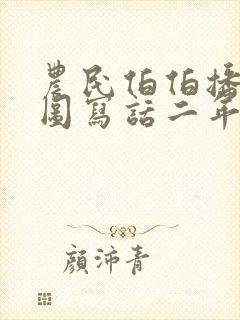 農民伯伯播
圖寫話二年
顏沛青